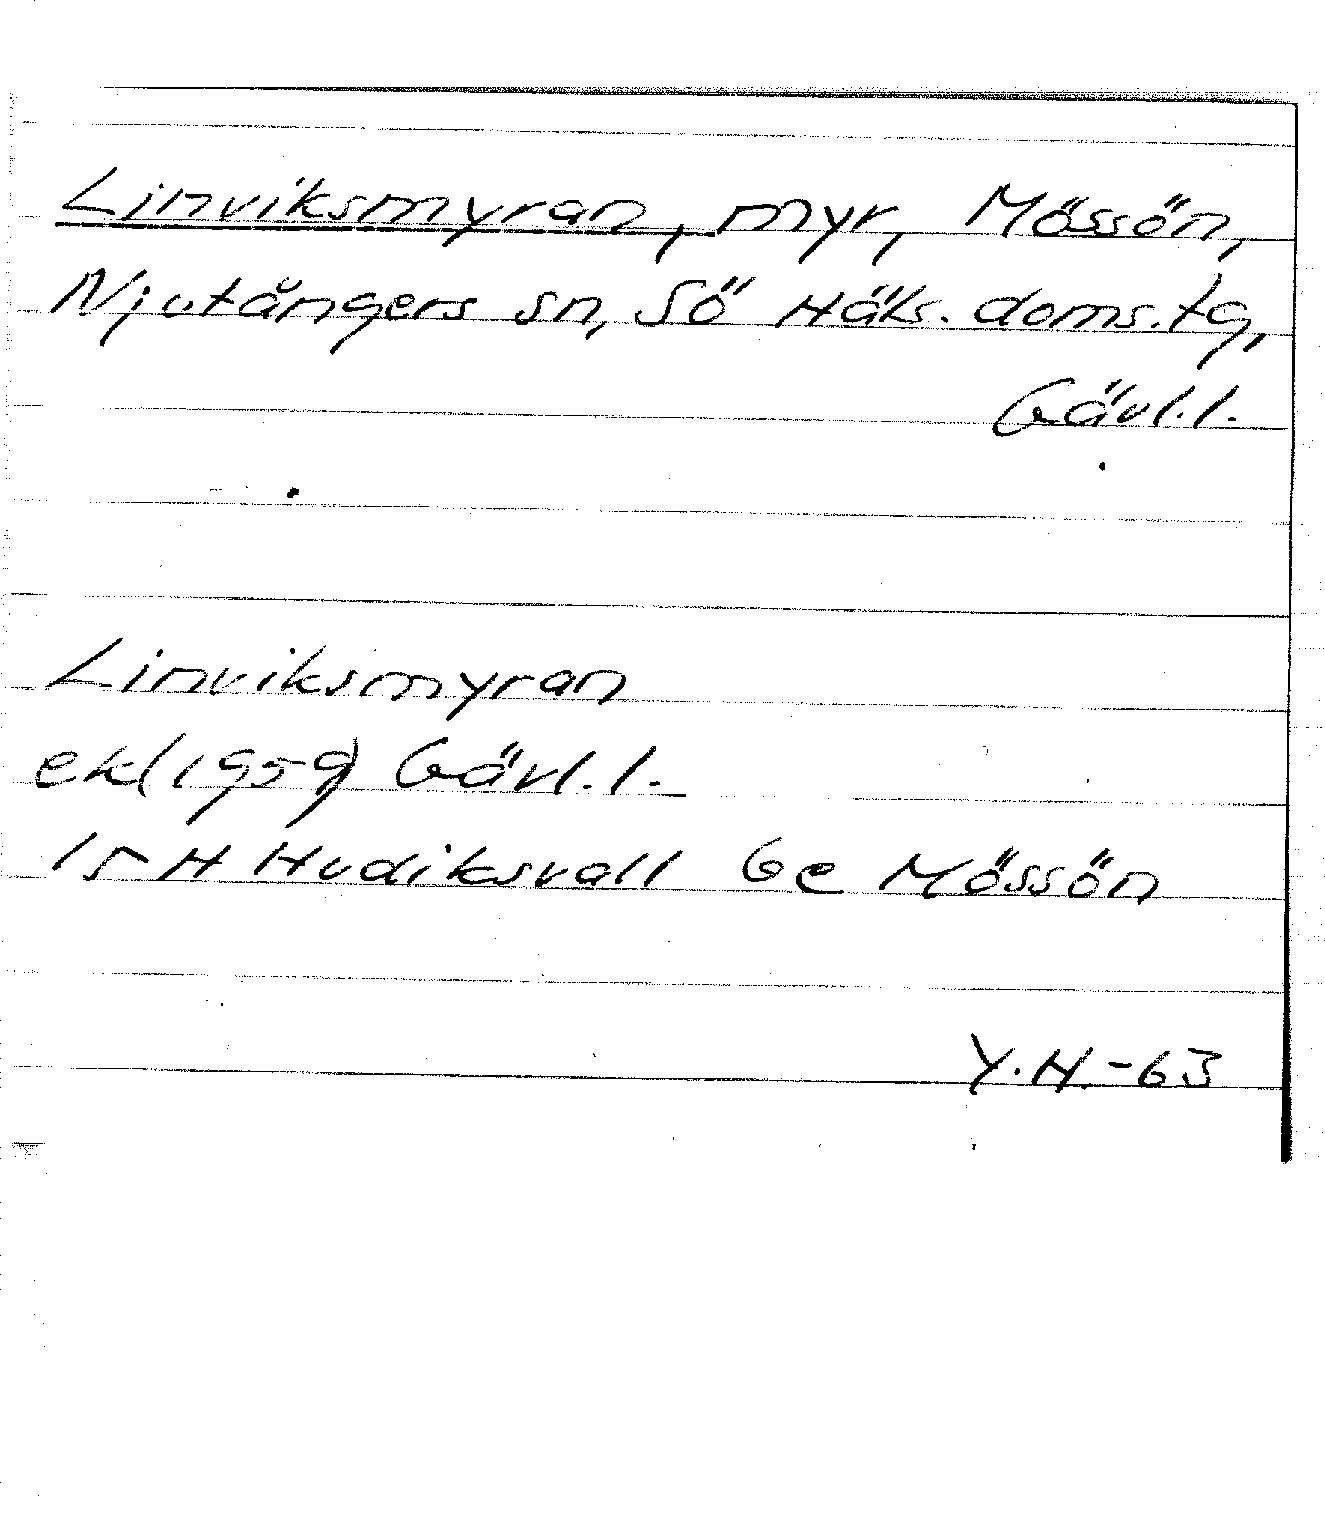 Linviksmyran, myr, Mössön,
Njutångers sn, Sö Häls. doms.tg,
Gävl.l.
Linviksmyran
ek(1959) Gävl.l.
15 H Hudiksvall 6e Mössön
Y.H.-63